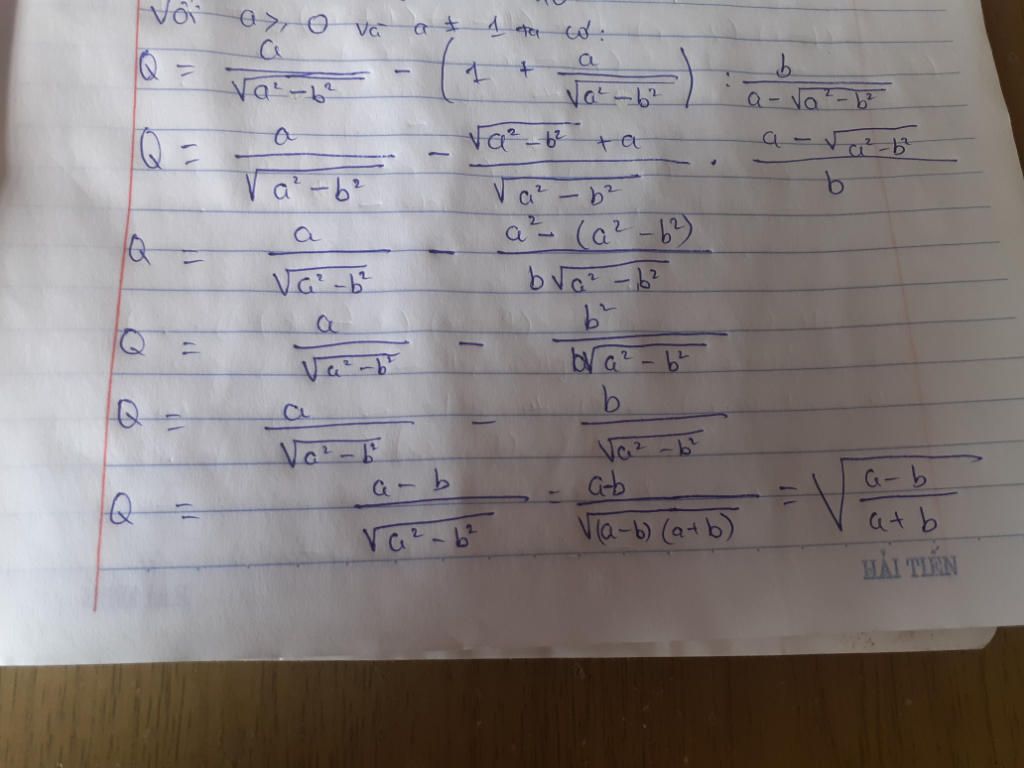 Với a ⩾ 0 và a ≠ 1 ta có:
Q = a/√(a² − b²) − (1 + a/√(a² − b²)) : b/(a − √(a² − b²))
Q = a/√(a² − b²) − (√(a² − b²) + a)/√(a² − b²) . (a − √(a² − b²))/b
Q = a/√(a² − b²) − (a² − (a² − b²))/(b√(a² − b²))
Q = a/√(a² − b²) − b²/(b√(a² − b²))
Q = a/√(a² − b²) − b/√(a² − b²)
Q = (a − b)/√(a² − b²) = (a − b)/√((a − b)(a + b)) = √((a − b)/(a + b))
HẢI TIẾN